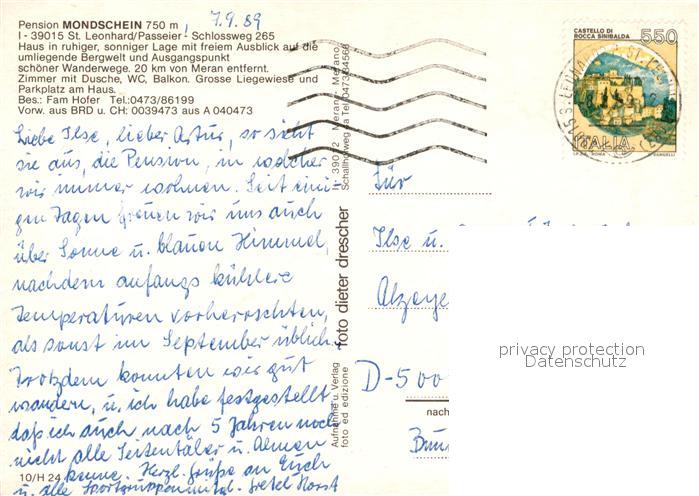 Pension MONDSCHEIN 750 m
7.9.89
I - 39015 St. Leonhard/Passeier - Schlossweg 265
Haus in ruhiger, sonniger Lage mit freiem Ausblick auf die
umliegende Bergwelt und Ausgangspunkt
schöner Wanderwege. 20 km von Meran entfernt.
Zimmer mit Dusche, WC, Balkon. Grosse Liegewiese und
Parkplatz am Haus.
Bes.: Fam Hofer Tel.:0473/86199
Vorw. aus BRD u. CH: 0039473 aus A 040473
Liebe Ilse, lieber Artur, so sieht
sie aus, die Pension, in welcher
wir immer wohnen. Seit eini
gen Tagen freuen wir uns auch
über Sonne u. blauen Himmel,
nachdem anfangs kühlere
Temperaturen vorherrschten,
als sonst im September üblich.
Trotzdem konnten wir gut
wandern, u. ich habe festgestellt
daß ich auch nach 5 Jahren noch
nicht alle Seitentäler u. Almen
kenne. Herzl. Grüße an Euch
u. alle Sportgruppenmitgl. Gretel Horst
10/H 24
Aufnahme u. Verlag
foto ed edizione
foto dieter drescher
I - 39012 Meran - Merano
Schallhofweg Tel 0473/34566
CASTELLO DI
ROCCA SINIBALDA
550
ITALIA
I.P.Z.S. ROMA
Für
Ilse u.
Alzeye
D-500
nach
Bun
privacy protection
Datenschutz